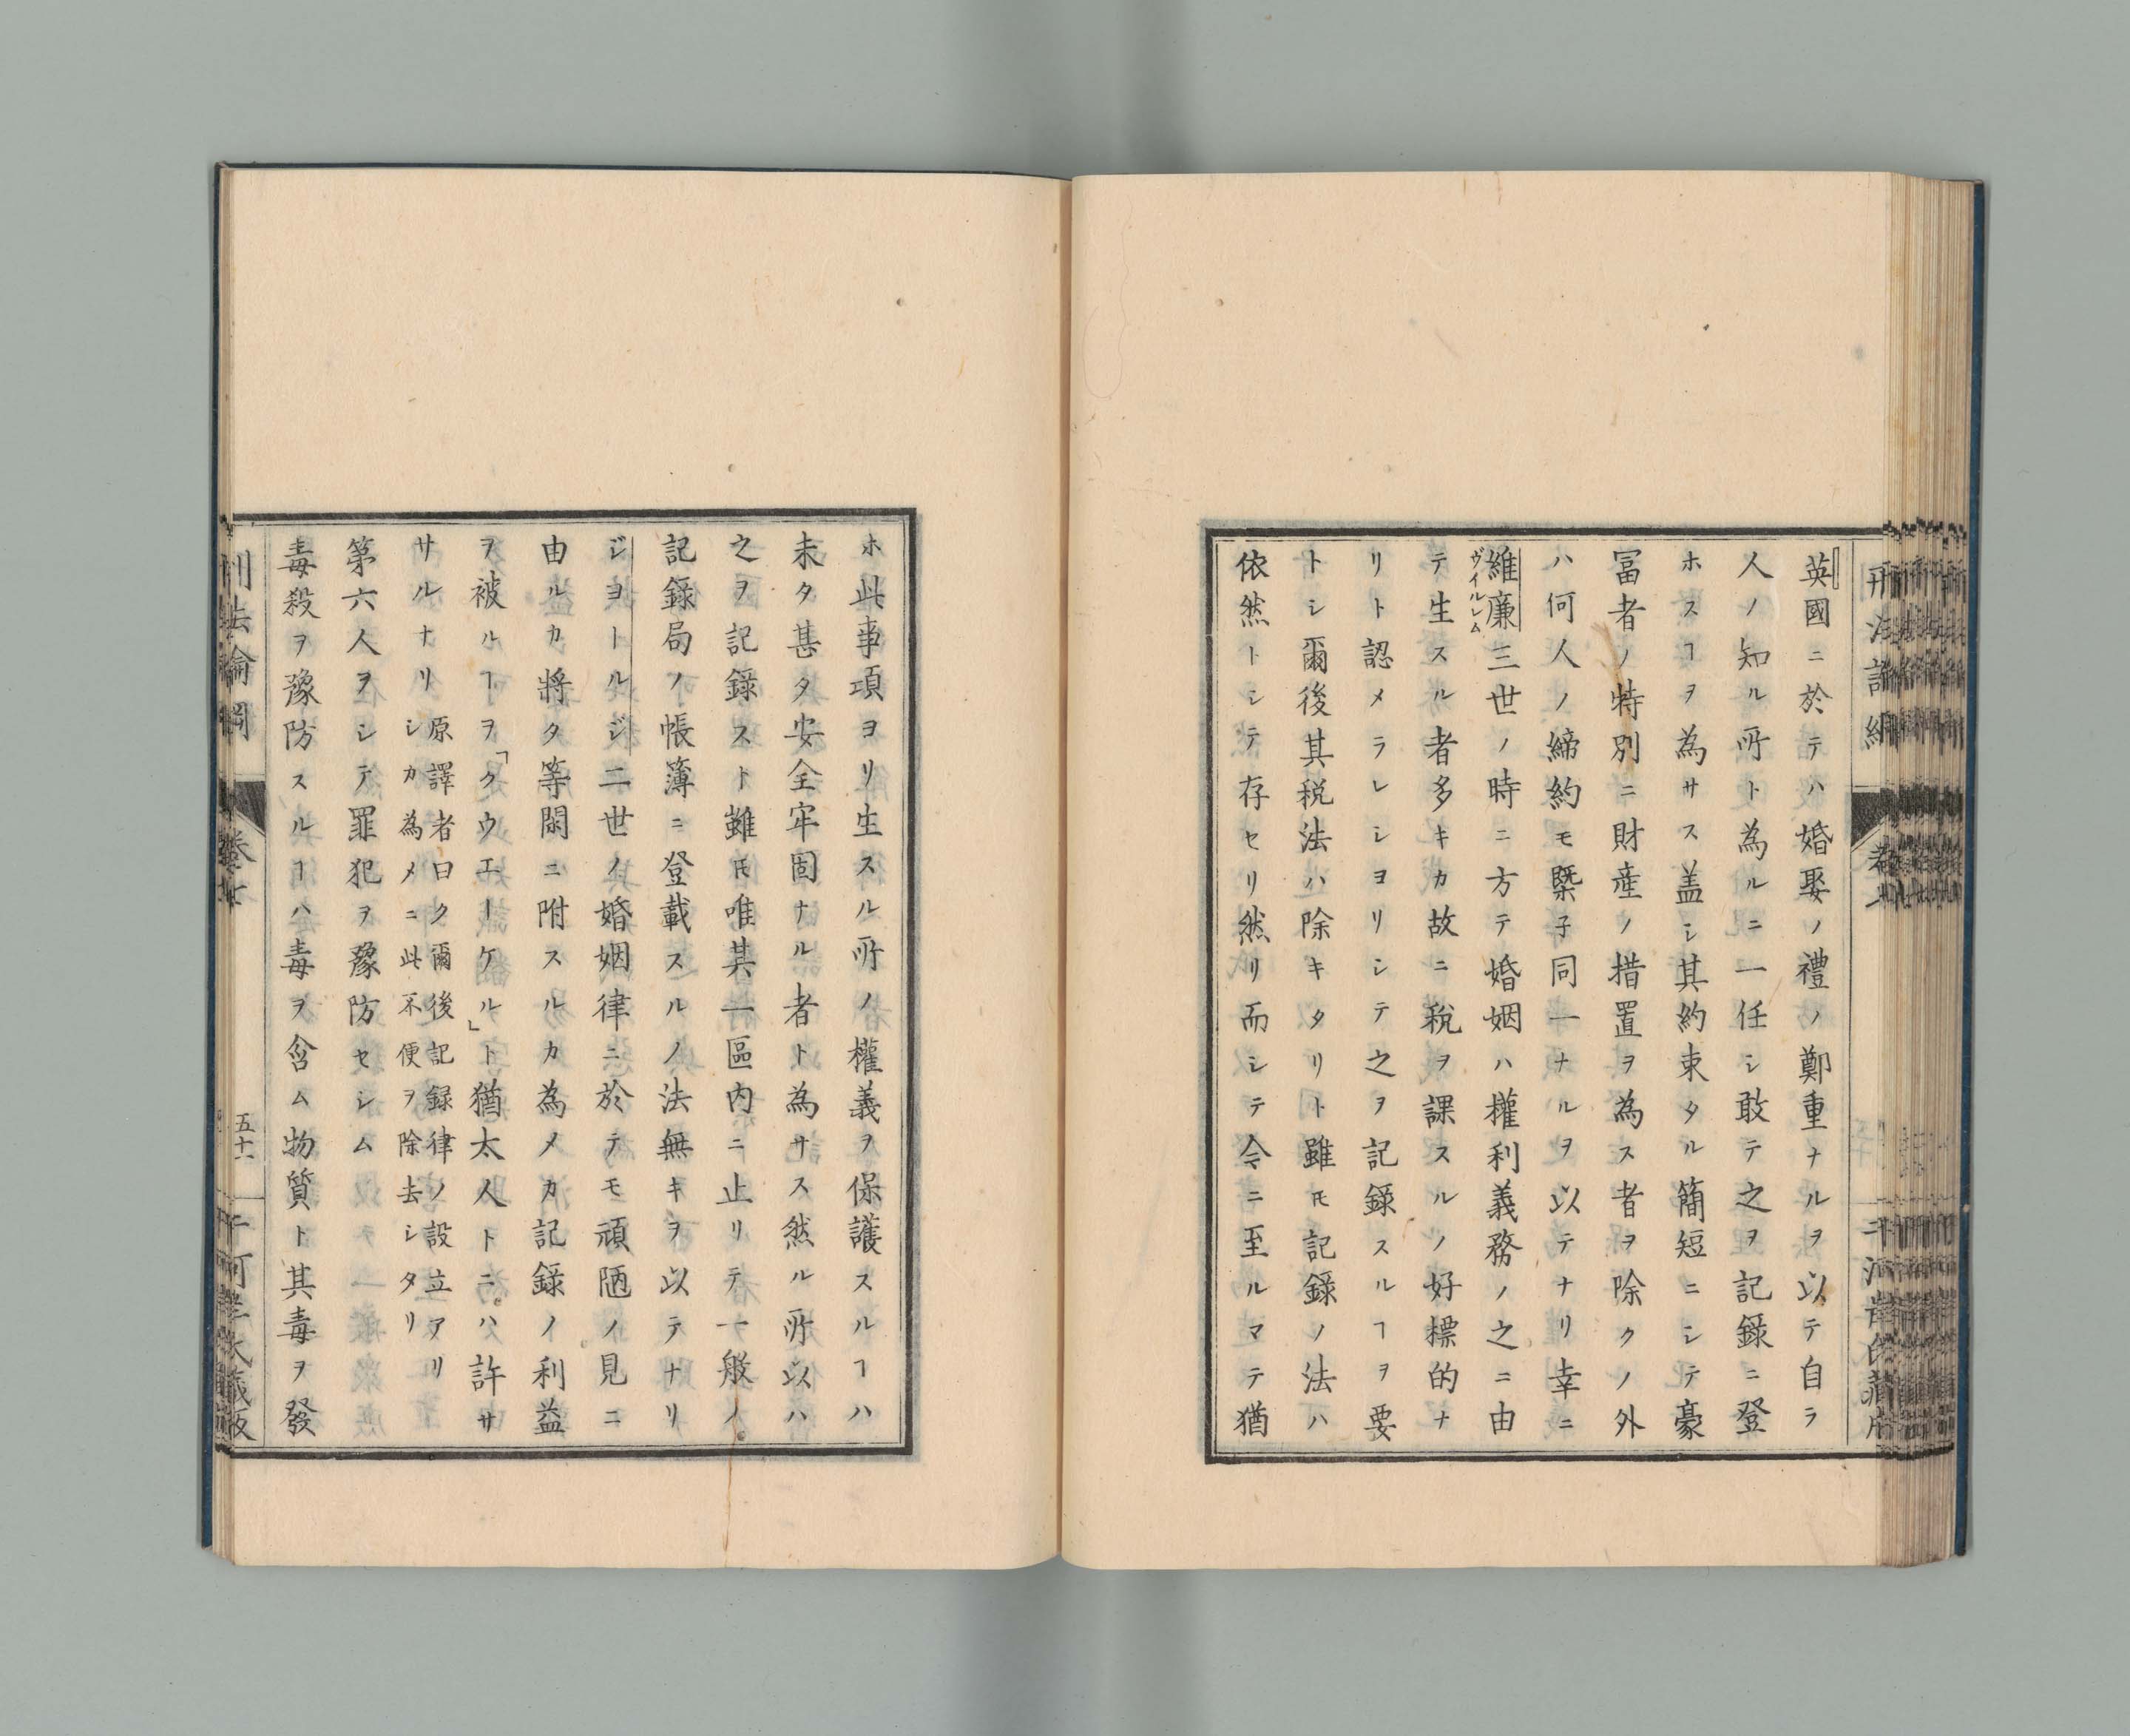 英國ニ於テハ婚娶ノ禮ノ鄭重ナルヲ以テ自ラ
人ノ知ル所ト為ルニ一任シ敢テ之ヲ記錄ニ登
ホスヿヲ為サス盖シ其約束タル簡短ニシテ豪
冨者ノ特別ニ財産ノ措置ヲ為ス者ヲ除クノ外
ハ何人ノ締約モ槩子同一ナルヲ以テナリ幸ニ
維廉三世ノ時ニ方テ婚姻ハ權利義務ノ之ニ由
ヴイルレム
テ生スル者多キカ故ニ稅ヲ課スルノ好標的ナ
リト認メラレシヨリシテ之ヲ記錄スルヿヲ要
トシ爾後其税法ハ除キタリト雖モ記錄ノ法ハ
依然トシテ存セリ然リ而シテ今ニ至ルマテ猶
ホ此事項ヨリ生スル所ノ權義ヲ保護スルヿハ
未タ甚タ安全牢固ナル者ト為サス然ル所以ハ
之ヲ記錄スト雖モ唯其一區内ニ止リテ一般ノ
記錄局ノ帳簿ニ登載スルノ法無キヲ以テナリ
ジヨールジ二世ノ婚姻律ニ於テモ頑陋ノ見ニ
由ルカ將タ等閑ニ附スルカ為メカ記錄ノ利益
ヲ被ルヿヲ「クウエーケル」ト猶太人トニハ許サ
サルナリ
原譯者曰ク爾後記録律ノ設立アリ
シカ為メニ此不便ヲ除去シタリ
第六人ヲシテ罪犯ヲ豫防セシム
毒殺ヲ豫防スルヿハ毒ヲ含ム物質ト其毒ヲ發
刑法論綱
卷七
五十一